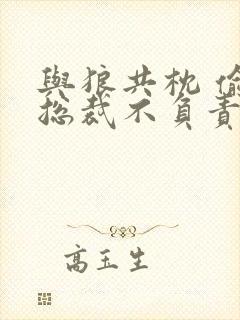 與狼共枕 偷
总裁不負責
高玉生